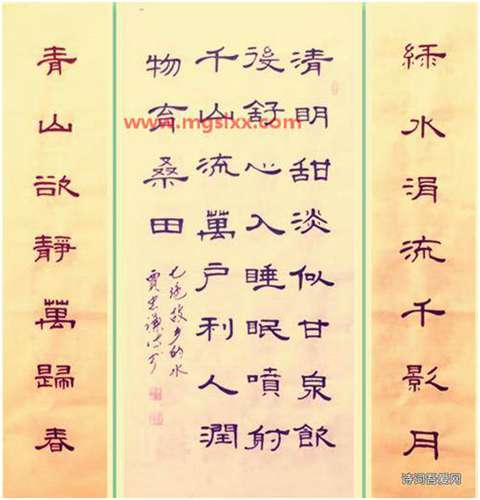 綠水涓流千影月
清明甜淡似甘泉飲
後舒心入睡眠噴射
千山流萬户利人潤
物育桑田
七绝故乡的水
青山欲靜萬歸春
www.mgslxx.com
诗词吾爱网